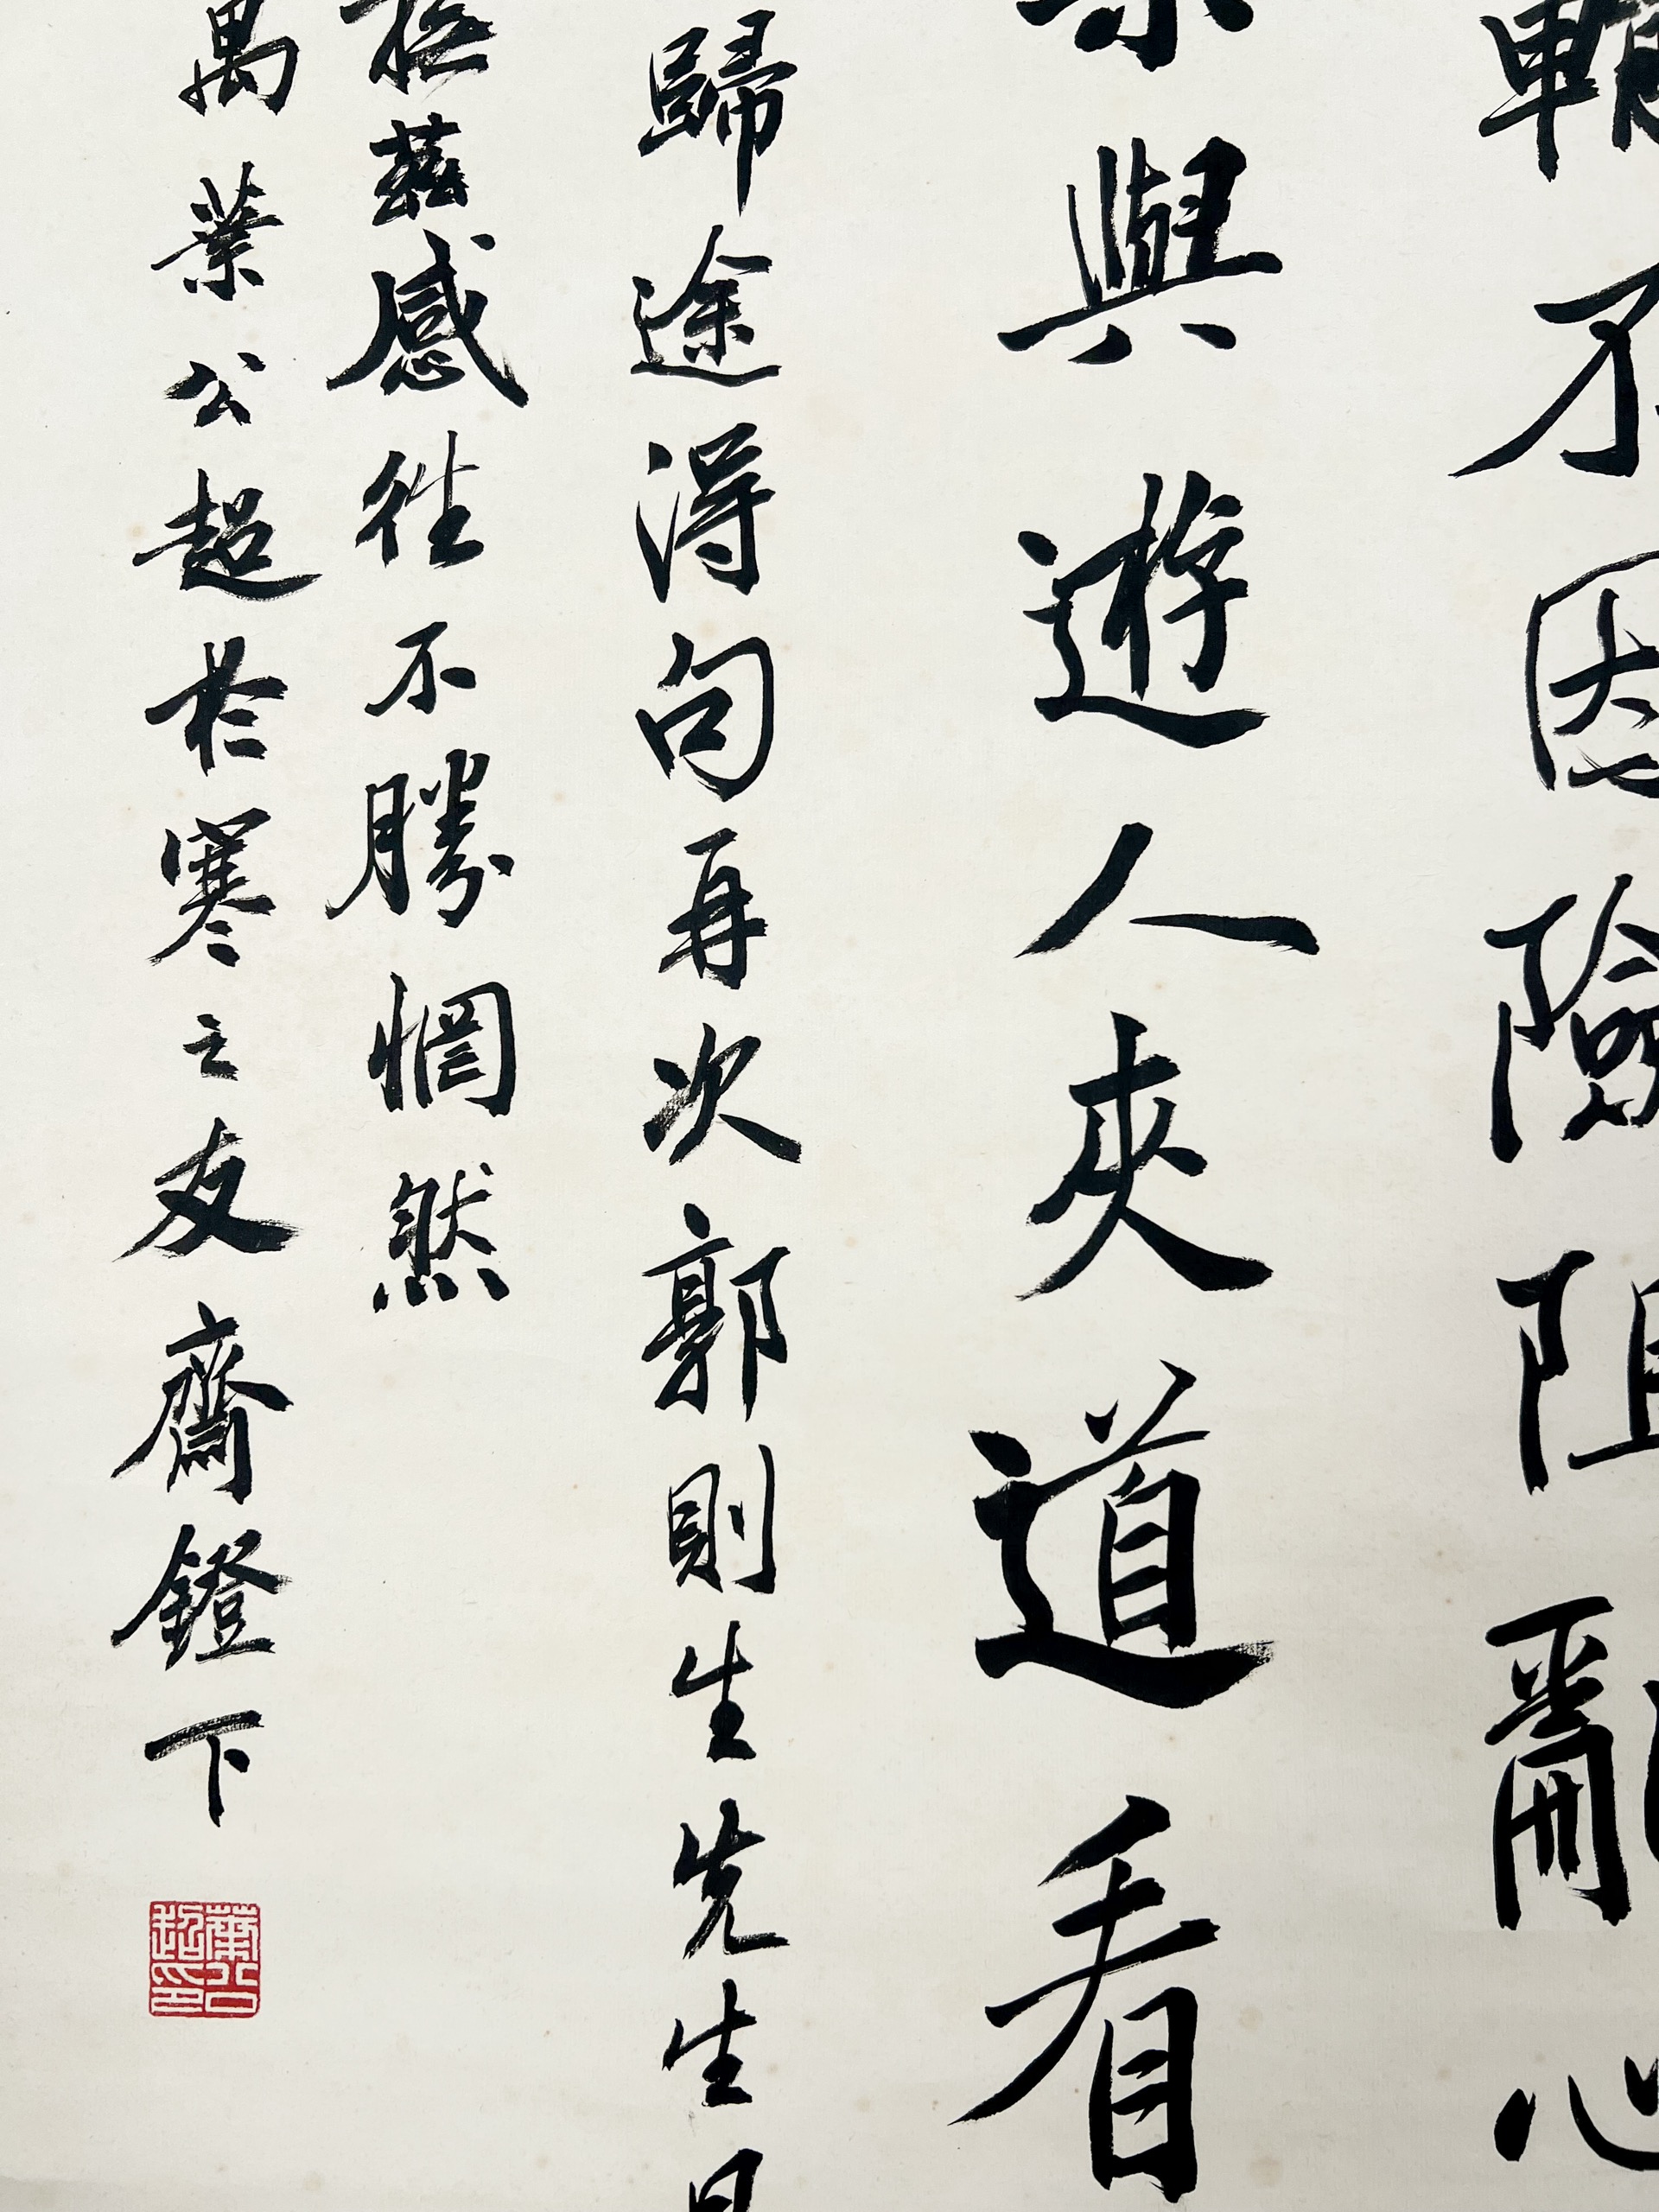 不因險阻亂心
與遊人夾道看
歸途得句再次郭則生先生
茲感往不勝惘然
葉公超於寒之友齋鐙下
葉公超印